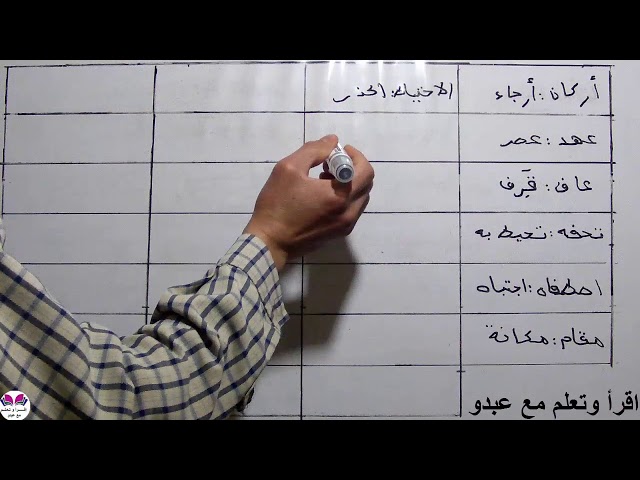 أركان : أرجاء
الاحتياط : الحذر
عهد : عصر
عاف : قَرِف
تحفه : تحيط به
اصطفاه : اجتباه
مقام : مكانة
اقرأ وتعلم مع عبدو
اقرأ و تعلم
مع عبدو